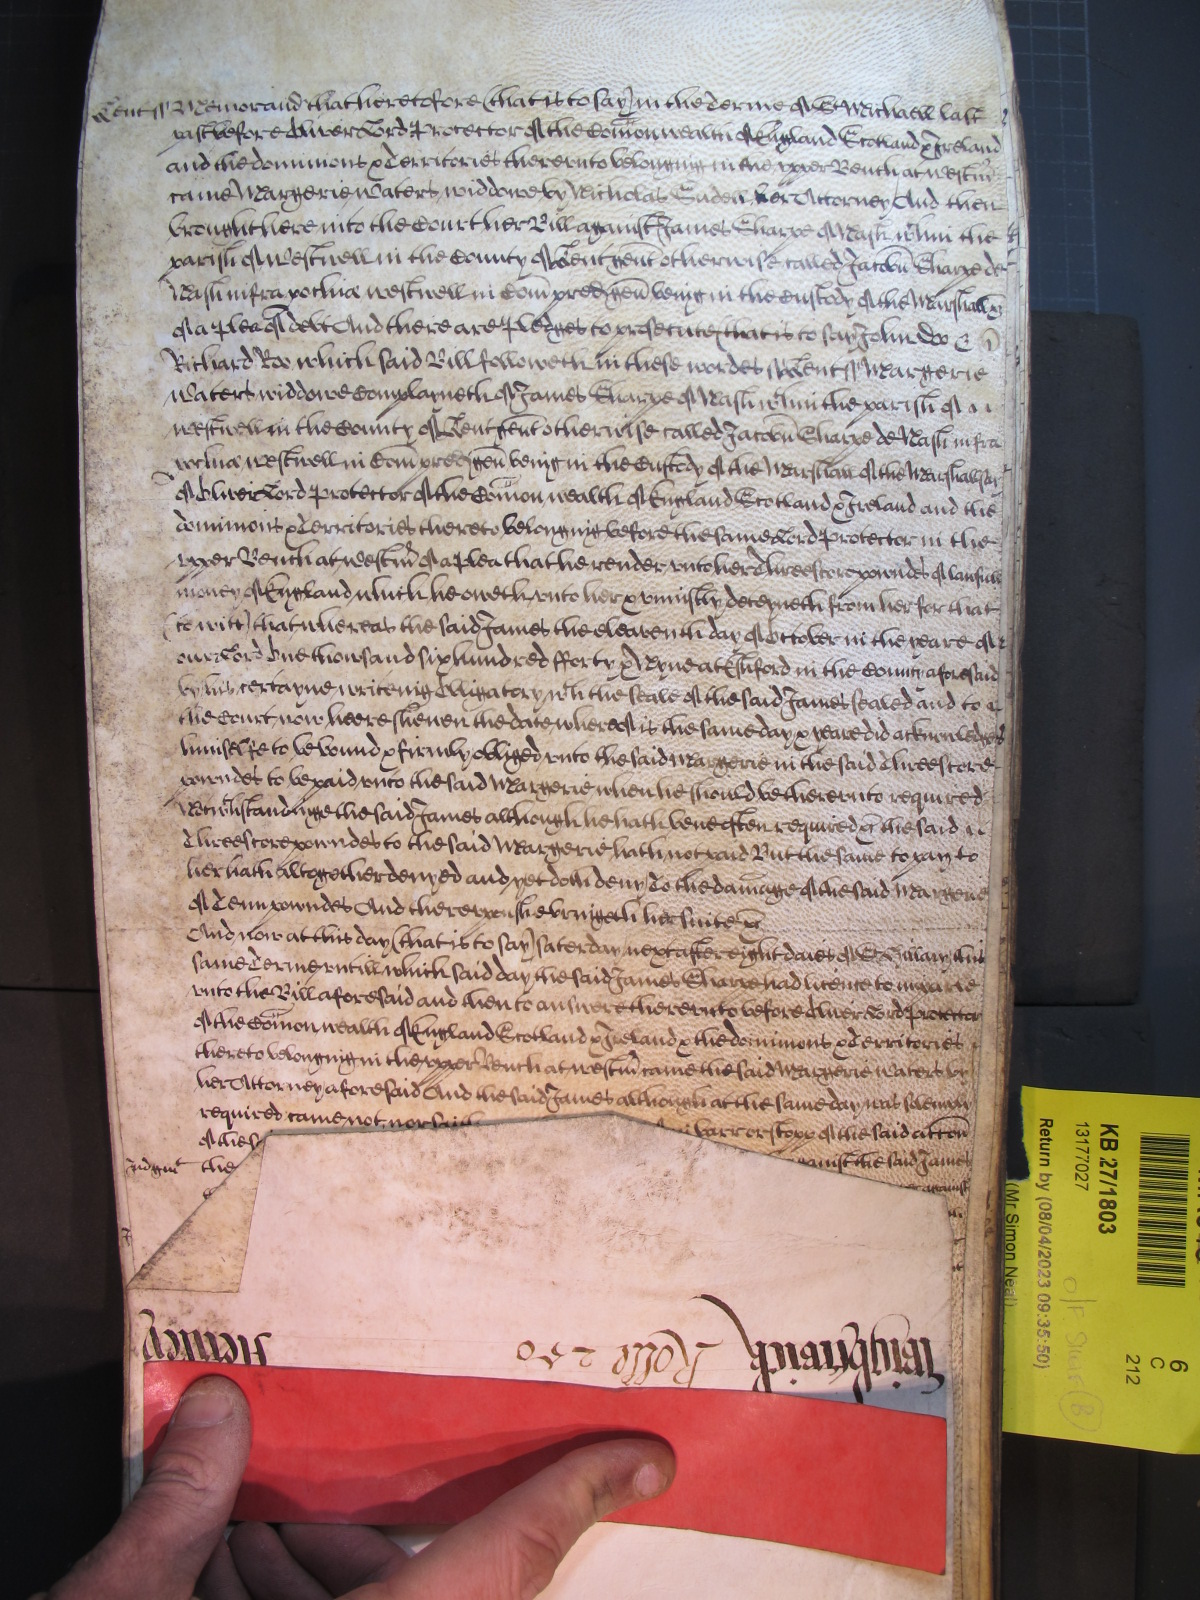 Kent ss Memorand that heretofore (that is to say) in the terme of St Michaell last
past before Oliver Lord Protector of the Comonwealth of England Scotland & Ireland
and the dominions & Territories thereunto belonging in the upper Bench at Westmr
came Margerie Waters widdowe by Nicholas her Attorney And then
brought here into the Court her Bill against James Sharpe of Nash wthin the
parish of Westwell in the County of Kent gent otherwise called Jacobu Sharpe de
Nash infra pochia Westwell in Com pred gen being in the Custody of the Marshall &c
of a Plea of debt And there are Pledges to prosecute (that is to say) John Doo &
Richard Roo which said Bill followeth in these wordes ss Kent ss Margerie
Waters widdowe Complayneth of James Sharpe of Nash wthin the parish of
Westwell in the County of Kent gent otherwise called Jacobu Sharpe de Nash infra
pochia Westwell in Com pred gen being in the Custody of the Marshall of the Marshallsey
of Oliver Lord Protector of the Comonwealth of England Scotland & Ireland and the
dominions & Territories thereto belonging before the same Lord Protector in the
upper Bench at Westmr of a Plea that he render unto her Threescore powndes of lawfull
money of England which he oweth unto her & uniustly deteyneth from her for that
(to witt) that whereas the said James the eleaventh day of October in the yeare of
our Lord One thousand six hundred fforty & Nyne at Ashford in the County aforesaid
by his certayne writeing Obligatory wth the seale of the said James sealed and to
the Court now heere shewen the date whereof is the same day & yeare did acknowledge
himselfe to be bound & firmly obliged unto the said Margerie in the said Threescore
powndes to be paid unto the said Margerie when he should be thereunto required
Notwthstandinge the said James although he hath bene often required &c the said
Threescore powndes to the said Margerie hath not paid But the same to pay to
her hath altogether denyed and yet doth deny To the damage of the said Margerie
of Tenn powndes And thereupon she bringeth her suite &c
And now at this day (that is to say) Saterday next after eight daies of St Hillary this
same Terme untill which said day the said James Sharpe had licence to imparle
unto the Bill aforesaid and then to answere thereunto before Oliver Lord Protector
of the Comonwealth of England Scotland & Ireland & the dominions & Territories
thereto belonging in the upper Bench at Westmr came the said Margerie Waters by
her Attorney aforesaid And the said James although at the same day was solemnly
required came not nor said barr or stopp of the said accon
of the
Judgmt the against the said James
against
Rolle 250
KB 27/1803
13177027
Return by (08/04/2023 09:35:50)
(Mr Simon Neal)
6
C
212